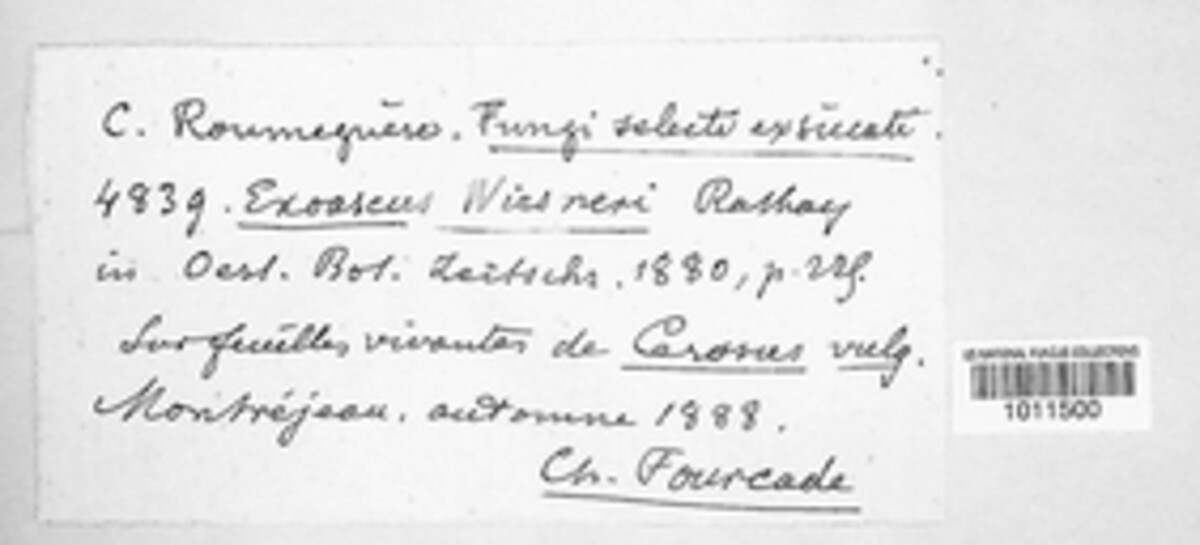 C. Roumeguère. Fungi selecti exsiccati.
4839. Exoascus Wiesneri Rathay
in Oest. Bot. Zeitschr. 1880, p. 225.
Sur feuilles vivantes de Cerasus vulg.
Montréjeau. automne 1888.
Ch. Fourcade
US NATIONAL FUNGUS COLLECTIONS
1011500